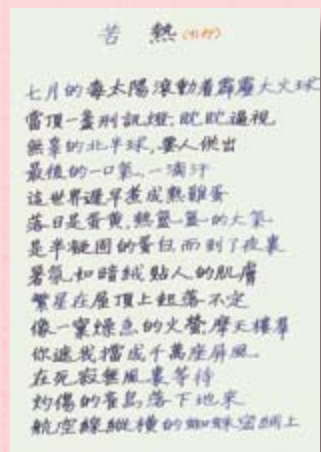 苦熱(節錄)
七月的毒太陽滾動着霹靂大火球
當頂一盞刑訊燈,眈眈逼視
無辜的北半球,要人供出
最後的一口氣,一滴汗
這世界遲早煮成熟雞蛋
落日是蛋黃,熱騰騰的大氣
是半凝固的蛋白而到了夜裏
暑氛如暗絨貼人的肌膚
繁星在屋頂上起落不定
像一窠燥急的火螢,摩天樓羣
你遮我擋成千萬座屏風
在死寂無風裏等待
灼傷的青鳥落下地來
航空線縱橫的蜘蛛密網上